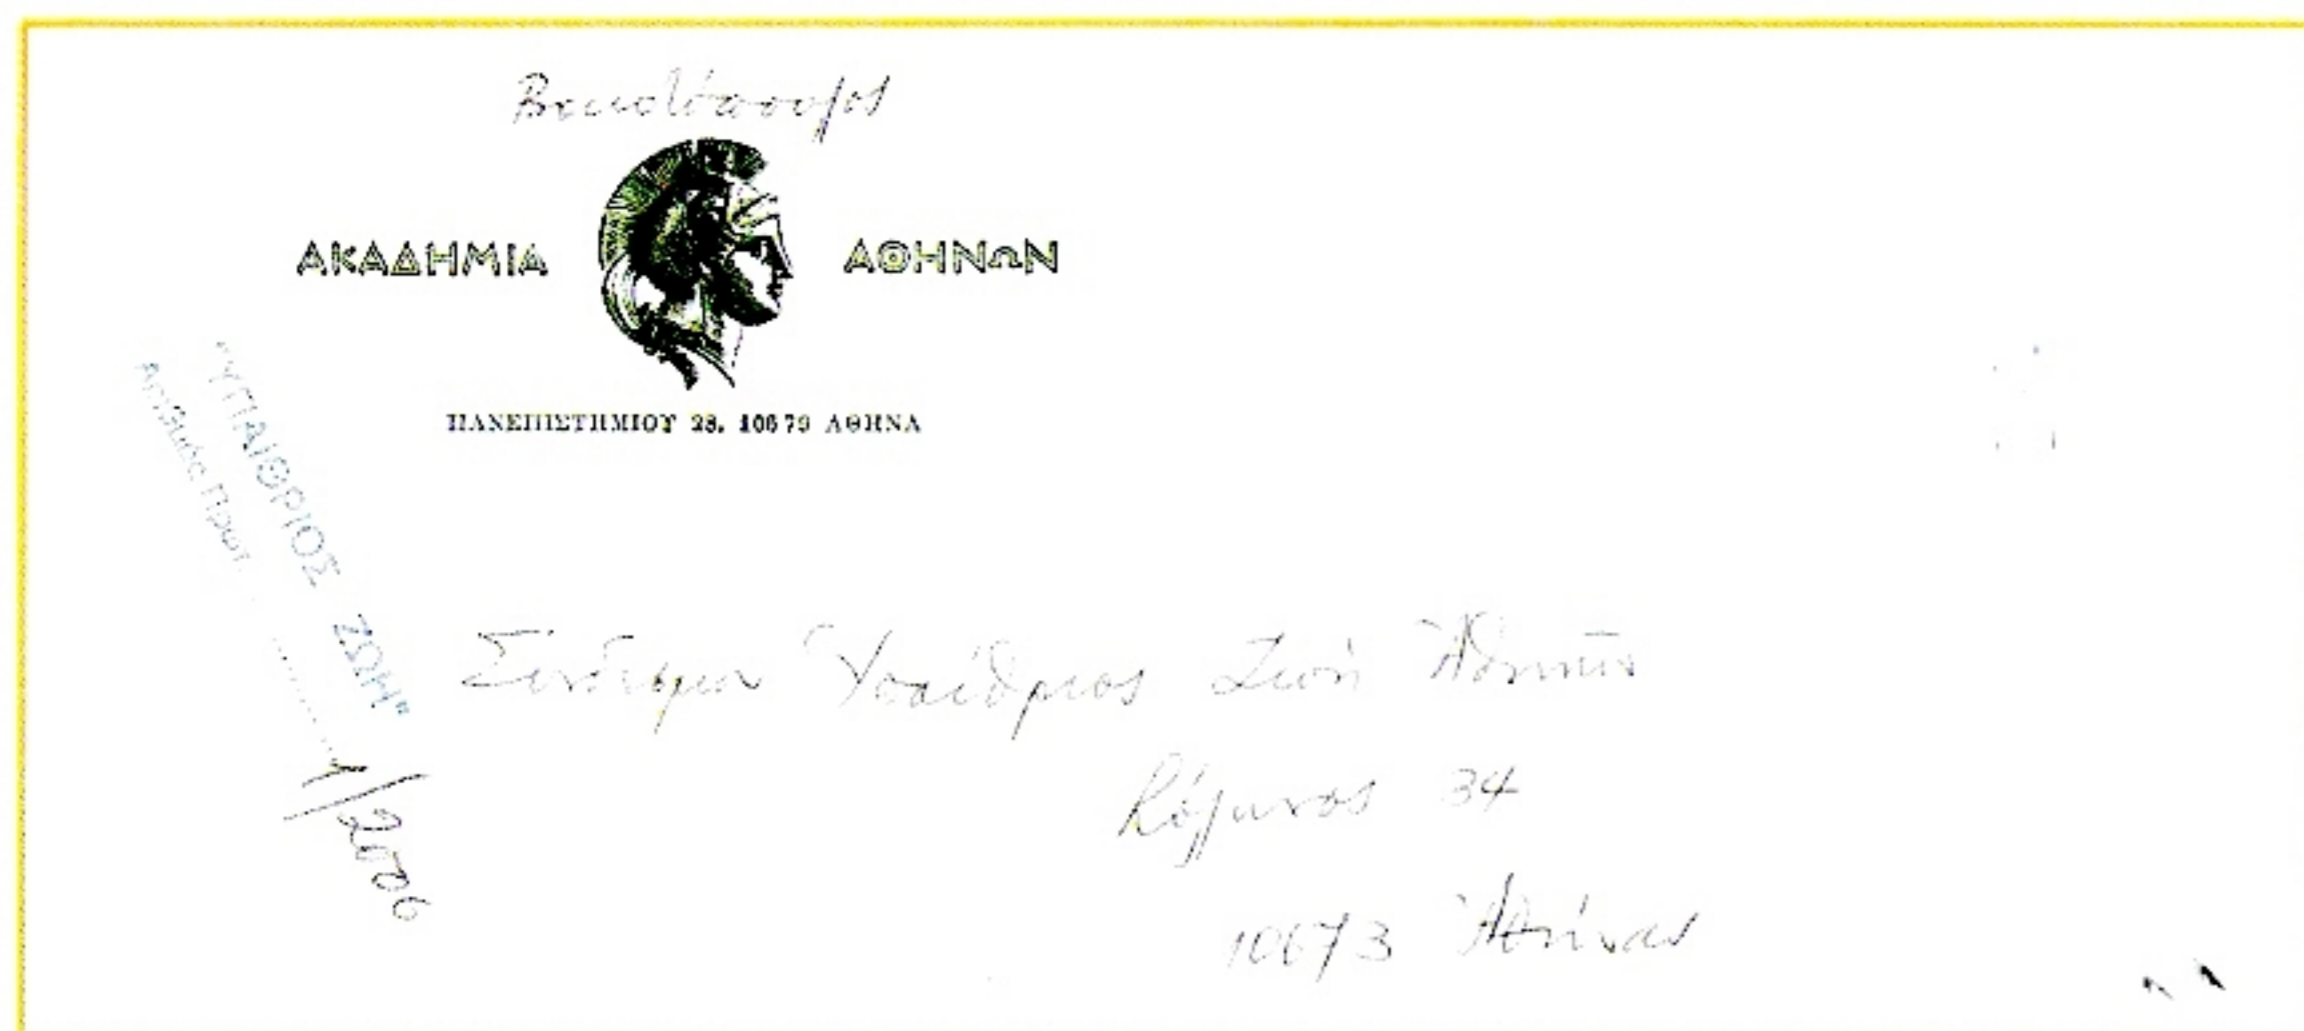 ΑΚΑΔΗΜΙΑ ΑΘΗΝΩΝ
ΠΑΝΕΠΙΣΤΗΜΙΟΥ 28, 106 79 ΑΘΗΝΑ
"ΥΠΑΙΘΡΙΟΣ ΖΩΗ"
Αριθμός Πρωτ.
1/2006
Σύνδεσμον Ὑπαίθριος Ζωή Ἀθηνῶν
34
10673 Ἀθήνας